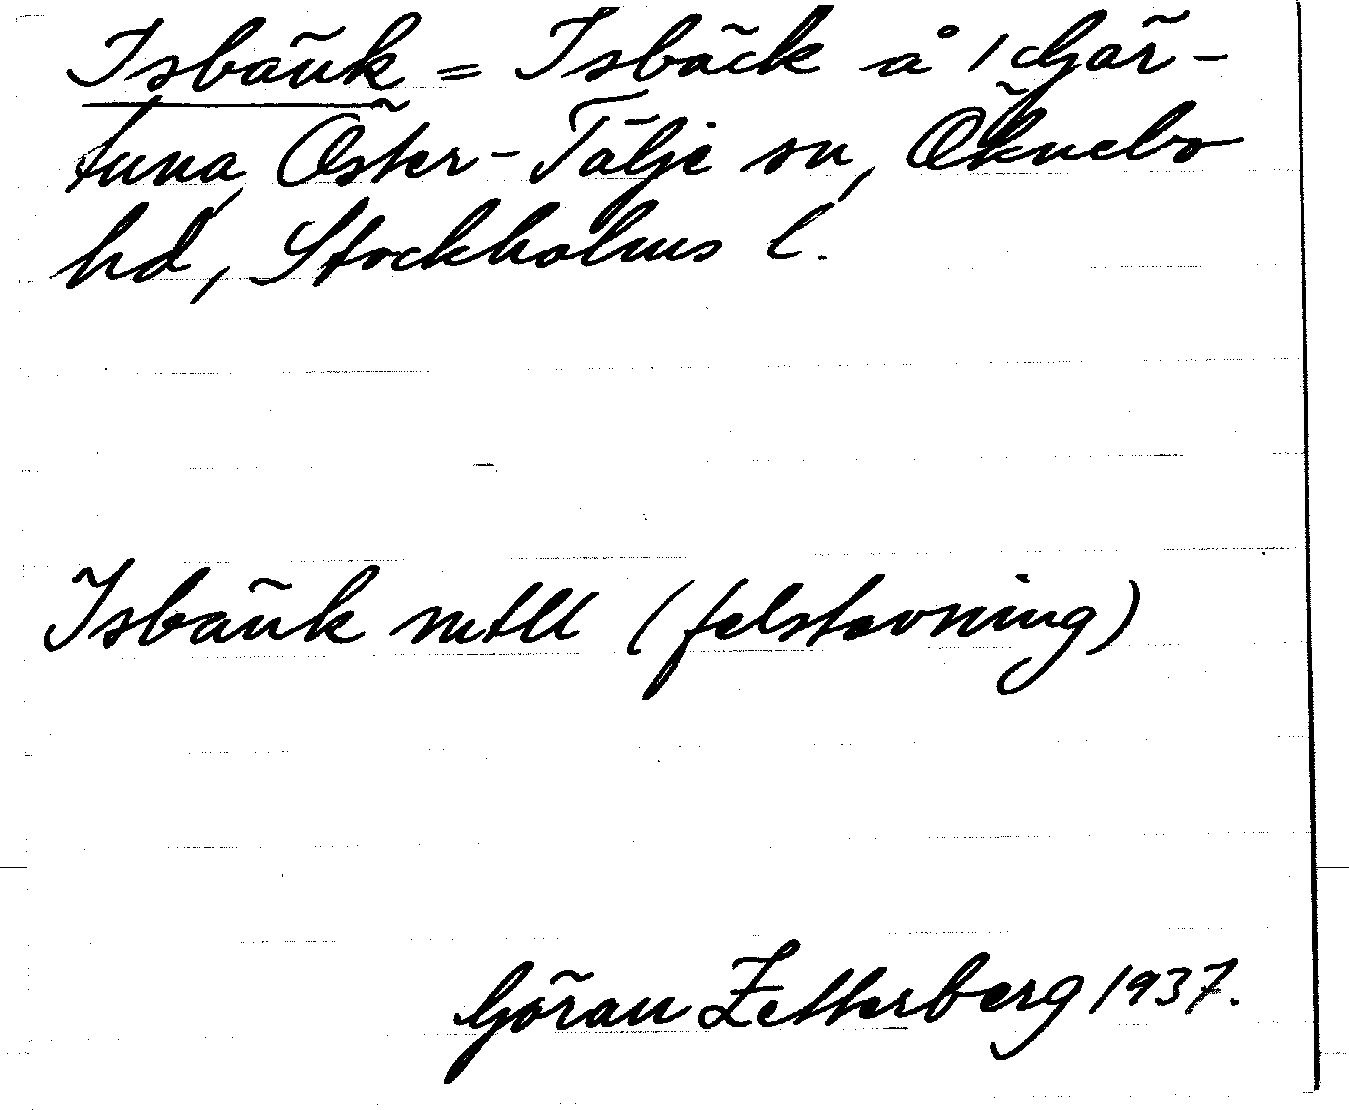 Isbänk = Isbäck å i Gär-
tuna, Öster-Tälje sn, Öknebo
hd, Stockholms l.
Isbänk mtll (felstavning)
Göran Zetterberg 1937.